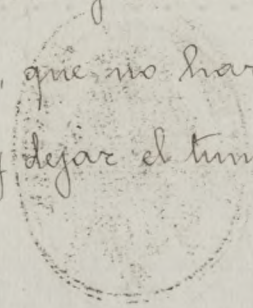 , que no har
y dejar el tun